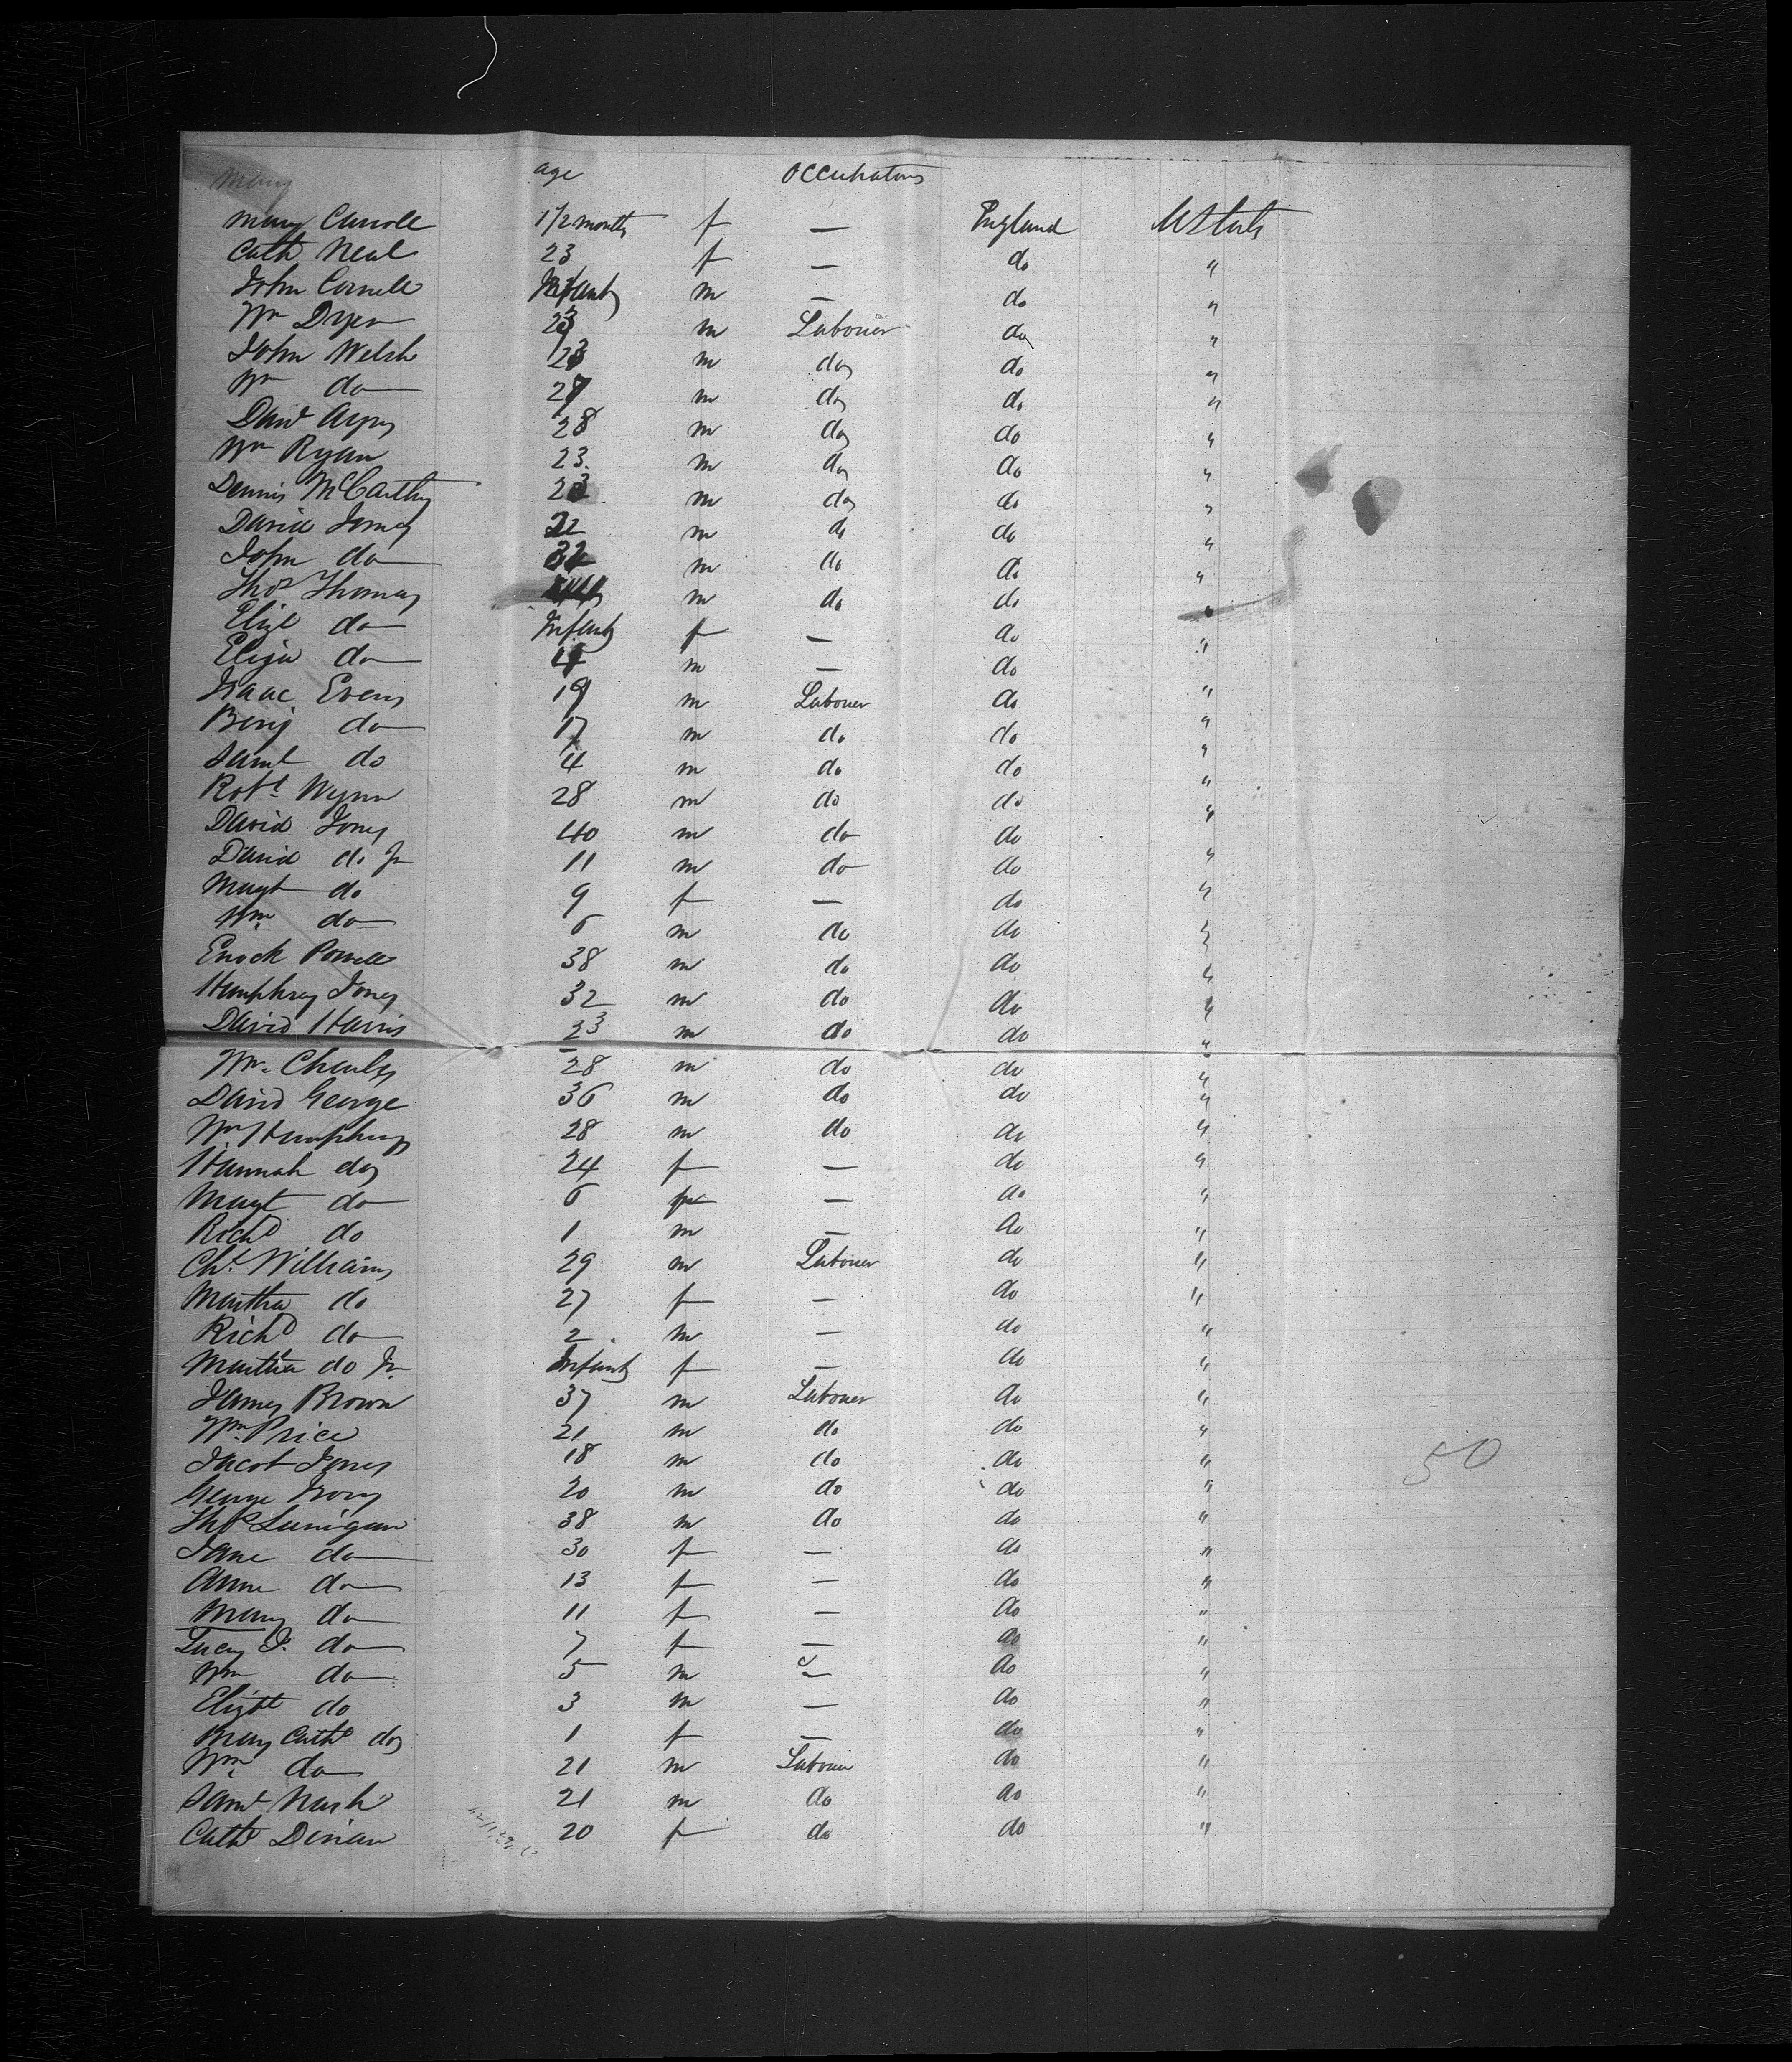 Mary age Occupations
Mary Carroll 1/2 month f — England U States
Cath Neal 23 f — do "
John Carroll Infant m — do "
Wm Dyer 23 m Labourer do "
John Welsh 23 m do do "
Wm do 27 m do do "
Davd 28 m do do "
Wm Ryan 23 m do do "
Dennis McCarthy 23 m do do "
David Jones 22 m do do "
John do 32 m do do "
Thos Thomas m do do "
Eliz do Infant f — do "
Eliza do 4 m — do "
Isaac Evans 19 m Labourer do "
Benj do 17 m do do "
Saml do 4 m do do "
Robt Wynn 28 m do do "
David Jones 40 m do do "
David do Jr 11 m do do "
Magt do 9 f — do "
Wm do 6 m do do "
Enoch Powell 38 m do do "
Humphrey Jones 32 m do do "
David Harris 23 m do do "
Wm Charles 28 m do do "
David George 36 m do do "
Wm Humphreys 28 m do do "
Hannah do 24 f — do "
Magt do 6 f — do "
Richd do 1 m — do "
Chs Williams 29 m Labourer do "
Martha do 27 f — do "
Richd do 2 m — do "
Martha do Jr Infant f — do "
James Brown 37 m Labourer do "
Wm Price 21 m do do "
Jacob Jones 18 m do do "
George 20 m do do "
Thos Lunigan 38 m do do "
Jane do 30 f — do "
Anne do 13 f — do "
Mary do 11 f — do "
Lucy J. do 7 f — do "
Wm do 5 m — do "
Elizbt do 3 m — do "
Mary Cath do 1 f — do "
Wm do 21 m Labourer do "
Saml Nash 21 m do do "
Cath 20 f do do "
50